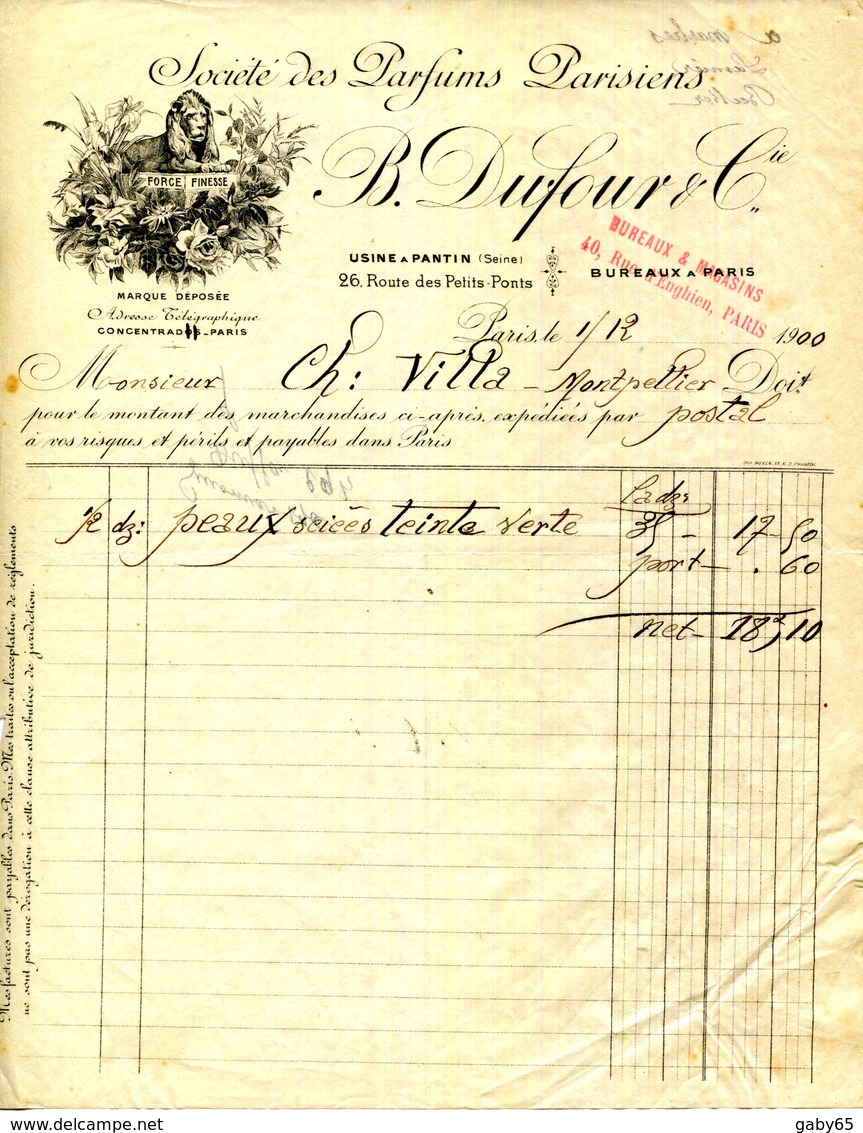 Société des Parfums Parisiens
B. Dufour & Cie
FORCE FINESSE
MARQUE DÉPOSÉE
Adresse Télégraphique
CONCENTRADOS-PARIS
USINE A PANTIN (Seine)
26, Route des Petits-Ponts
BUREAUX A PARIS
BUREAUX & MAGASINS
40, Rue d'Enghien, PARIS
Paris, le 1/12 1900
Monsieur Ch: Villa - Montpellier Doit
pour le montant des marchandises ci-après, expédiées par postal
à vos risques et périls et payables dans Paris
La dz:
1/2 dz: peaux sciées teinte verte 35 - 17-50
port - . 60
net - 18,10
Mes factures sont payables dans Paris. Mes traites ou l'acceptation de règlements
ne sont pas une dérogation à cette clause attributive de juridiction.
delcampe.net
gaby65